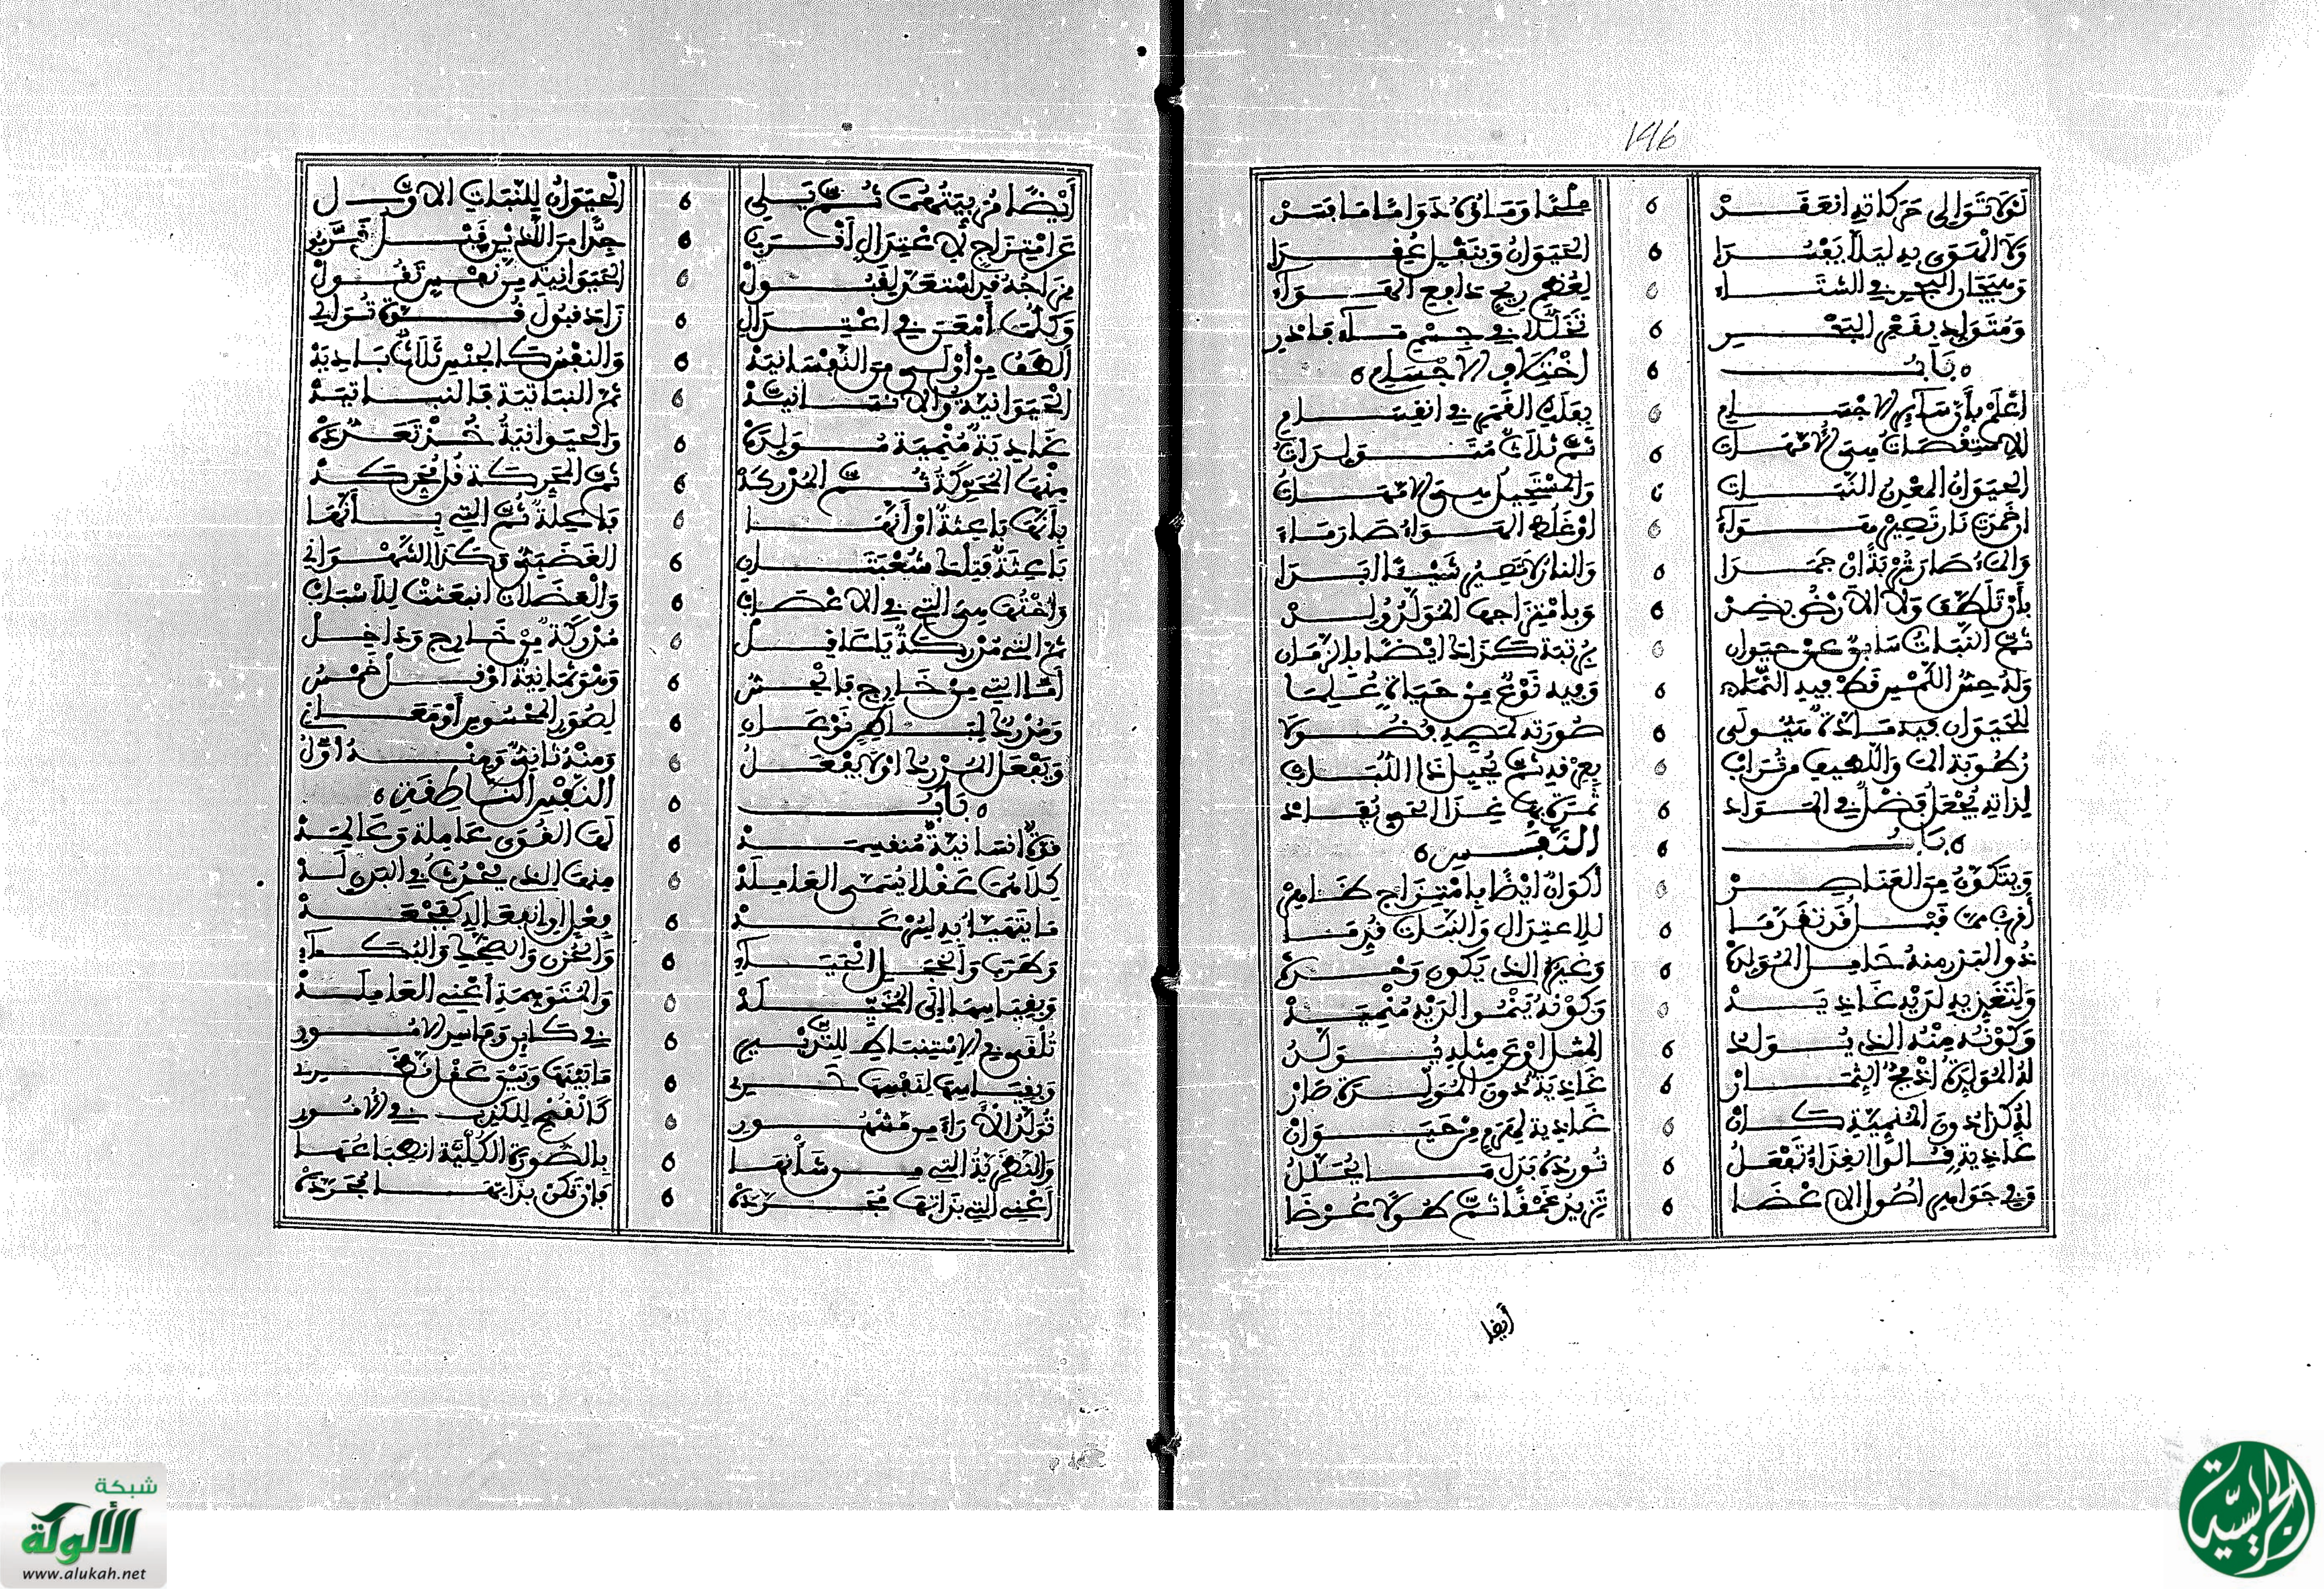 146
لَوْلَا تَوَالِى حَرَكَاتِهِ انْعَقَدْ ٥ مِلْحًا وَمَاؤُهُ دَوَامًا مَا فَسَدْ
وَلَا الْهَوَى بِهِ لِيَلَّا يَفْسُدَا ٥ الحَيَوَانُ وَبِنَقْلٍ
وَهَيَجَانُ البَحْرِ فِي الشِّتَاءِ ٥ لِعُظْمِ رِيحٍ دَافِعِ الهَوَاءِ
وَمُتَوَلِّدٌ بِقَعْرِ البَحْرِ ٥ تَخَلْخُلًا فِي جِسْمِ مَاءٍ فَادْرِ
٥ بَابُ ٥ اخْتِلَافِ الأَجْسَامِ ٥
اعْلَمْ بِأَنَّ سَائِرَ الأَجْسَامِ ٥ بِفَلَكِ القَمَرِ فِي انْقِسَامِ
لِلْاسْتِقْصَاتِ هِيَ الأُمَّهَاتْ ٥ ثُمَّ ثَلَاثٌ مُتَوَلِّدَاتْ
الحَيَوَانُ المَعْدِنُ النَّبَاتُ ٥ وَالمُسْتَحِيلُ هِيَ الأُمَّهَاتُ
اذْ خَمَدَتْ نَارٌ تَصِيرُ هَوَاءْ ٥ اوْ غَلُظَ الهَوَاءُ صَارَ مَاءْ
وَالمَاءُ صَارَ تُرْبَةً انْ جَمَدَا ٥ وَالنَّارُ لَا تَصِيرُ شَيْئًا أَبَدَا
بِأَنْ تَلَطَّفَ وَلَا الأَرْضُ بِضِدْ ٥ وَبِامْتِزَاجِهَا المُوَلَّدُ وُلِدْ
ثُمَّ النَّبَاتُ سَابِقٌ عَنْ حَيَوَانِ ٥ مَرْتَبَةً كَذَاكَ ايْضًا بِالزَّمَانِ
وَلَهُ حِسُّ اللَّمْسِ قَطْ فِيهِ النَّمَاءُ ٥ وَفِيهِ نَوْعٌ مِنْ حَيَاةٍ عُلِمَا
لِلْحَيَوَانِ فِيهِ مَادَّةٌ هَيُولَى ٥ صُورَتُهُ
رُطُوبَةُ المَاءِ وَاللَّطِيفِ مِنْ تُرَابِ ٥ بِعِرْقِهِ ثُمَّ يُحِيلُ ذَا اللُّبَابِ
لِذَاتِهِ يُجْعَلُ فَضْلٌ فِي المَوَادْ ٥ ثَمَرَةً بِهَا غِذَا الحَيِّ يُفَادْ
٥ بَابُ ٥ النَّفْسِ ٥
وَيَتَكَوَّنُ مِنَ العَنَاصِرْ ٥ أَكْوَانٌ ايْضًا بِامْتِزَاجٍ ظَاهِرْ
أَقْرَبُ مِمَّنْ قَبْلُ قَدْ تَقَدَّمَا ٥ لِلِاعْتِدَالِ وَالنَّبَاتُ قُدِّمَا
ذُو البَزْرِ مِنْهُ حَامِلُ المُوَلِّدَةْ ٥ وَغَيْرُهُ الذِي يَكُونُ وَحْدَهْ
وَلِتَغَذِّيهِ لَدَيْهِ غَاذِيَةْ ٥ وَكَوْنُهُ يَنْمُو الَدَيْهِ مُنْمِيَةْ
وَكَوْنُهُ مِنْهُ الذِي يُوَلَّدُ ٥ المِثْلُ اوْ عَنْ مِثْلِهِ يُوَلَّدُ
لَهُ المُوَلِّدَةُ اذْ فِجُّ الثِّمَارْ ٥ غَاذِيَةً دُونَ المُوَلِّدَةِ صَارْ
لَهُ كَذَا دُونَ المُنَمِّيَةِ كَانْ ٥ غَاذِيَةُ الهَرِمِ مِنْ حَيَوَانْ
غَاذِيَةٌ قَالُوا الغِذَاءُ تَفْعَلُ ٥ تُورِدُهُ بَدَلَ مَا يُحَلَّلُ
وَفِي جَوَاهِرِ اصُولِ الاعْضَا ٥ تَزِيدُ عُمْقًا ثُمَّ طُولًا عُرْضَا
أيضا
أَيْضًا مُرَبِّيَتُهُمَا ثُمَّ تَلِي ٥ الْحَيَوَانُ لِلنَّبَاتِ الاوَّلِ
عَنِ امْتِزَاجٍ لِاعْتِدَالٍ أَقْرَبِ ٥ جِدًّا مِنَ اللَّذَيْنِ قَبْلُ قَرِّبِ
مِزَاجُهُ قَدِ اسْتَعَدَّ لِقَبُولْ ٥ الحَيَوَانِيَّةِ مِنْ نَفْسٍ تَقُولْ
وَكُلَّمَا أَمْعَنَ فِي اعْتِدَالِ ٥ زَادَ قَبُولَ قُوَّةٍ تُوَالِي
أَلْطَفُ مِنْ أُولَى مِنَ النَّفْسَانِيَةْ ٥ وَالنَّفْسُ كَالجِنْسِ ثَلَاثٌ بَادِيَةْ
الحَيَوَانِيَّةُ وَالانْسَانِيَّةْ ٥ ثُمَّ النَّبَاتِيَّةُ فَالنَّبَاتِيَةْ
غَاذِيَةٌ مُنْمِيَةٌ مُوَلِّدَةْ ٥ وَالحَيَوَانِيَةُ خُذْ
مِنْهَا المُحَرِّكَةُ ثُمَّ المُدْرِكَةْ ٥ ثُمَّ المُحَرِّكَةُ قُلْ مُحَرِّكَةْ
بِأَنَّهَا بَاعِثَةٌ اوْ أَنَّهَا ٥ فَاعِلَةٌ ثُمَّ التِي بِأَنَّهَا
بَاعِثَةٌ قُلْ شُعْبَتَانِ ٥ الغَضَبِيُّ وَكَذَا الشَّهْوَانِي
وَاخْتُهَا هِيَ التِي فِي الاعْصَابِ ٥ وَالعَضَلَاتِ انْبَعَثَتْ لِلَاسْبَابِ
ثُمَّ التِي مُدْرِكَةٌ يَا عَاقِلْ ٥ مُدْرِكَةٌ مِنْ خَارِجٍ وَدَاخِلْ
أَمَّا التِي مِنْ خَارِجٍ فَالْحِسُّ ٥ وَهْوَ ثَمَانِيَةٌ اوْ قُلْ خَمْسُ
وَمُدْرِكُ البَاطِنِ نَوْعَانِ ٥ لِصُوَرِ المَحْسُوسِ أَوْ مَعَانِ
وَيَفْعَلُ المُدْرِكُ اوْ لَا يَفْعَلُ ٥ وَمِنْهُ ثَانٍ وَمِنْهُ أَوَّلُ
٥ بَابُ ٥ النَّفْسِ النَّاطِقَةِ ٥
قُوَّةُ انْسَانِيَّةٍ مُنْقَسِمَةْ ٥ لَهَا القُوَى عَامِلَةٌ وَعَالِمَةْ
كِلَاهُمَا عَقْلًا يُسَمَّى العَامِلَةْ ٥ مِنْهَا الذِي يَحْدُثُ فِي البَدَنِ لَهْ
مَا يَتَهَيَّا بِهِ لِسُرْعَةْ ٥ فِعْلٍ اوِ انْفِعَالِهِ
وَطَرَبٍ وَالخَجَلِ الحَيَاءِ ٥ وَالحُزْنِ وَالضَّحِكِ وَالبُكَاءِ
وَبِقِيَاسِهَا الَى المُخَيِّلَةْ ٥ وَالمُتَوَهِّمَةِ أَعْنِي العَامِلَةْ
تُلْفَى فِي الِاسْتِنْبَاطِ لِلتَّدْبِيرِ ٥ فِي كَائِنٍ وَفَاسِدِ الأُمُورِ
وَبِقِيَاسِهَا لِنَفْسِهَا ٥ مَا بَيْنَهَا وَبَيْنَ عَقْلٍ
تُوَلِّدُ الآرَاءَ مِنْ مَشْهُورِ ٥ كَالْقُبْحِ لِلْكَذِبِ فِي الأُمُورِ
وَالنَّظَرِيَّةُ التِي مِنْ شَأْنِهَا ٥ بِالصُّوَرِ الكُلِّيَّةِ انْطِبَاعُهَا
أَعْنِي التِي بِذَاتِهَا مُجَرَّدَةْ ٥ فَإِنْ تَكُنْ بِذَاتِهَا مُجَرَّدَةْ
شبكة
الألوكة
www.alukah.net